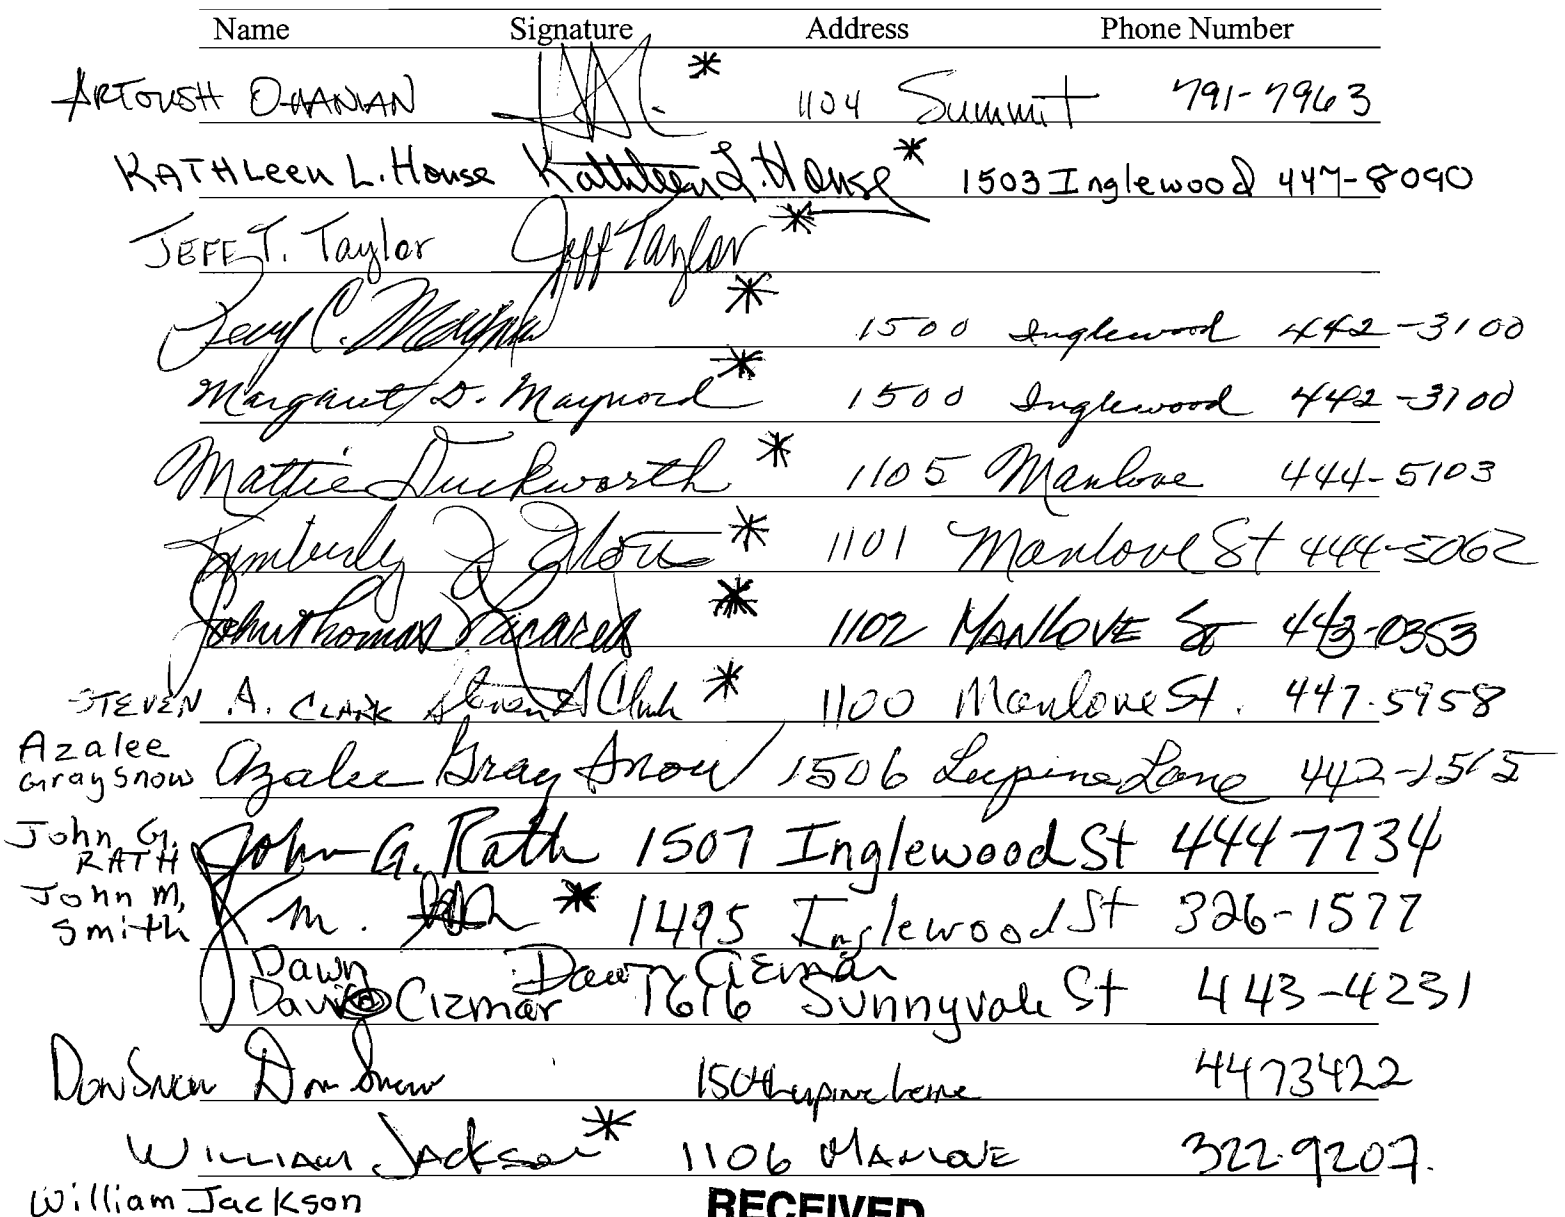 Name Signature Address Phone Number
ARTOUSH OHANIAN * 1104 Summit 791-7963
KATHLeen L. House Kathleen L. House * 1503 Inglewood 447-8090
JEFF T. Taylor Jeff Taylor *
C. * 1500 Inglewood 442-3100
Margaret D. Maynord * 1500 Inglewood 442-3100
Mattie Duckworth * 1105 Manlove 444-5103
Kimberly * 1101 Manlove St 444-5062
John Thomas * 1102 MANLOVE St 443-0353
STEVEN A. CLARK Steven A Clark * 1100 Manlove St. 447-5958
Azalee
Gray Snow Azalee Gray Snow 1506 Lupine Lane 442-1515
John G.
RATH John G. Rath 1507 Inglewood St 444 7734
John M,
Smith J m. * 1495 Inglewood St 326-1577
Dawn Dawn Cizmar
David Cizmar 1616 Sunnyvale St 443-4231
Don Snow Don Snow Lupine Lane 4473422
WILLIAM JACKSON * 1106 MANLOVE 322-9207.
William Jackson
RECEIVED